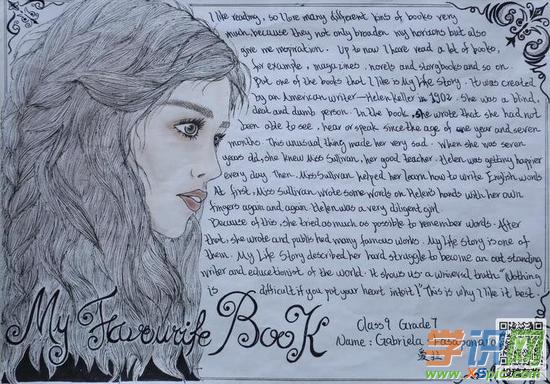 I like reading, so I love many different kins of books very
much, because they not only broaden my horizons but also
give me inspiration. Up to now I have read a lot of books,
for example, magazines, novels and storybooks and so on.
But one of the books that I like is My Life Story. It was created
by an American writer—Helen Keller in 1902. She was a blind,
deaf and dumb person. In the book, she wrote that she had not
been able to see, hear or speak since the age of one year and seven
months. This unusual thing made her very sad. When she was seven
years old, she knew Miss Sullivan, her good teacher. Helen was getting happier
every day. Then, Miss Sullivan helped her learn how to write English words.
At first, Miss Sullivan wrote some words on Helen's hands with her own
fingers again and again. Helen was a very diligent girl.
Because of this, she tried as much as possible to remember words. After
that, she wrote and published many famous works. My Life Story is one of
them. My Life Story described her hard struggle to become an out standing
writer and educationist of the world. It shows us a universal truth: "Nothing
is difficult if you put your heart into it!" This is why I like it best.
My Favourife BooK
Class 9 Grade 7
Name: Gabriela
学识网